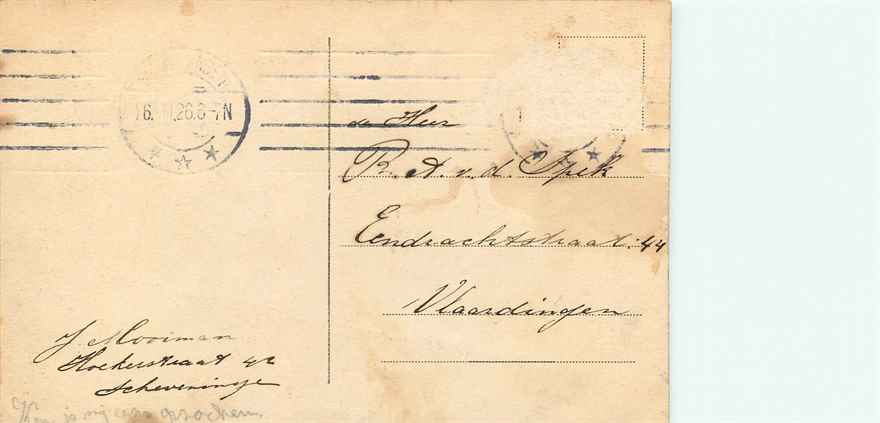 26.8-7N
de Heer
R. A. v. d. Spek
Eendrachtstraat. 44
Vlaardingen
J Mooiman
Hoekerstraat 42
Scheveninge